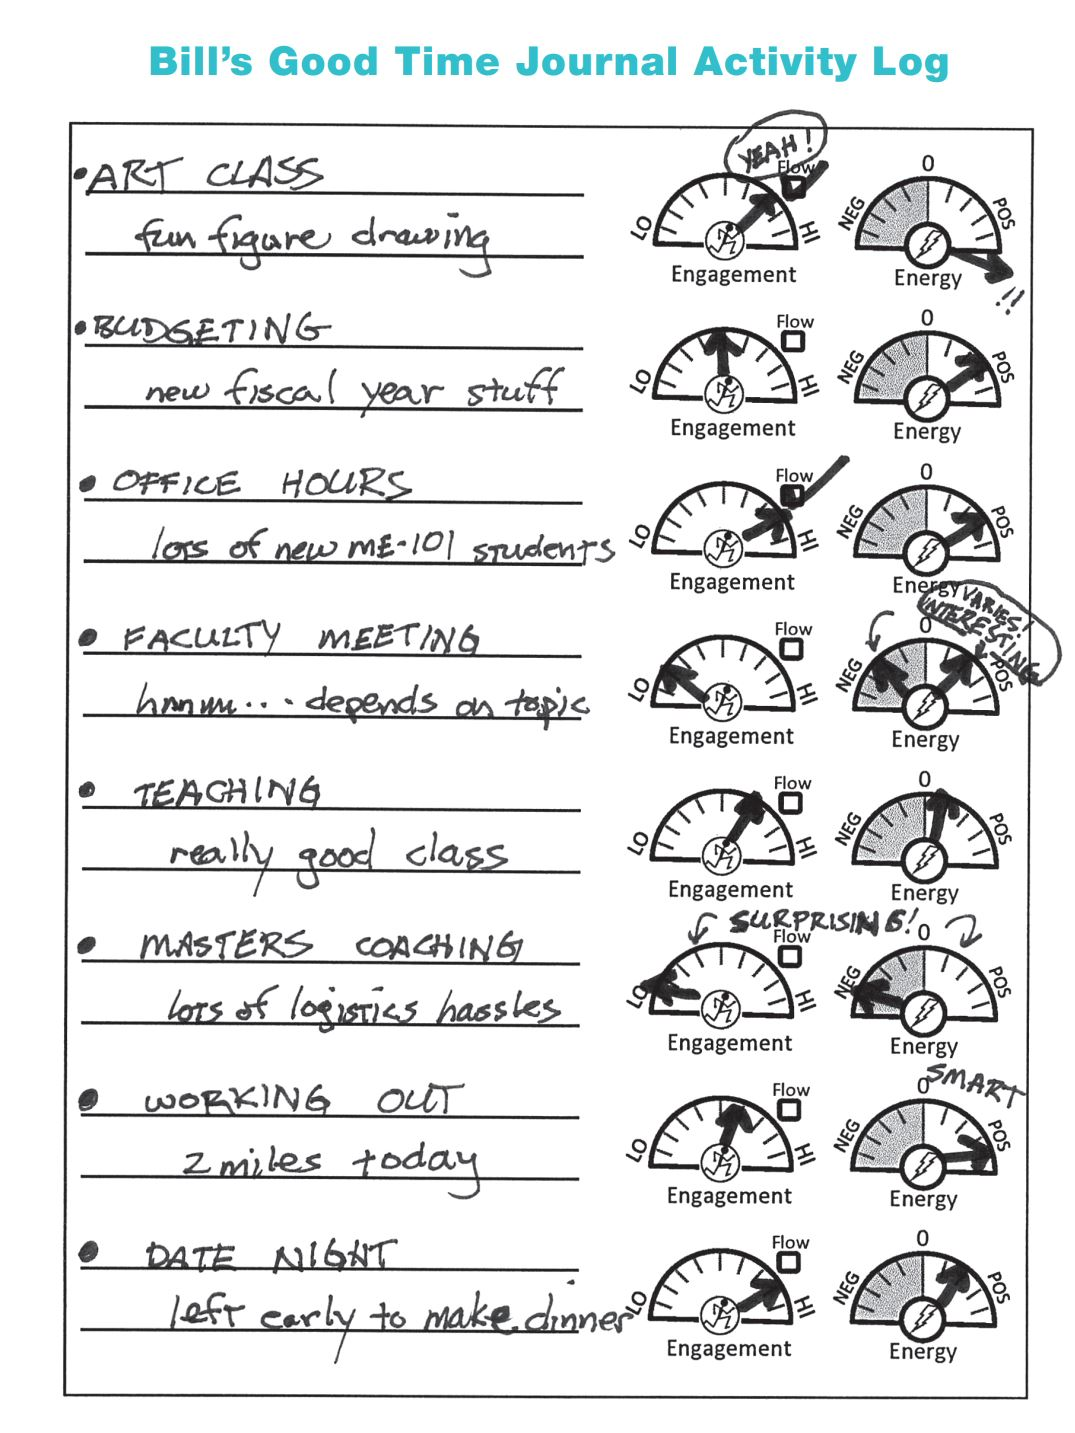 Bill's Good Time Journal Activity Log
YEAH!
• ART CLASS
fun figure drawing
Flow
LO
HI
Engagement
0
NEG
POS
Energy
!!
• BUDGETING
new fiscal year stuff
Flow
LO
HI
Engagement
0
NEG
POS
Energy
• OFFICE HOURS
lots of new ME-101 students
Flow
LO
HI
Engagement
0
NEG
POS
Energy
VARIES!
INTERESTING
• FACULTY MEETING
hmmm... depends on topic
Flow
LO
HI
Engagement
0
NEG
POS
Energy
• TEACHING
really good class
Flow
LO
HI
Engagement
0
NEG
POS
Energy
SURPRISING!
• MASTERS COACHING
lots of logistics hassles
Flow
LO
HI
Engagement
0
NEG
POS
Energy
SMART
• WORKING OUT
2 miles today
Flow
LO
HI
Engagement
0
NEG
POS
Energy
• DATE NIGHT
left early to make dinner
Flow
LO
HI
Engagement
0
NEG
POS
Energy